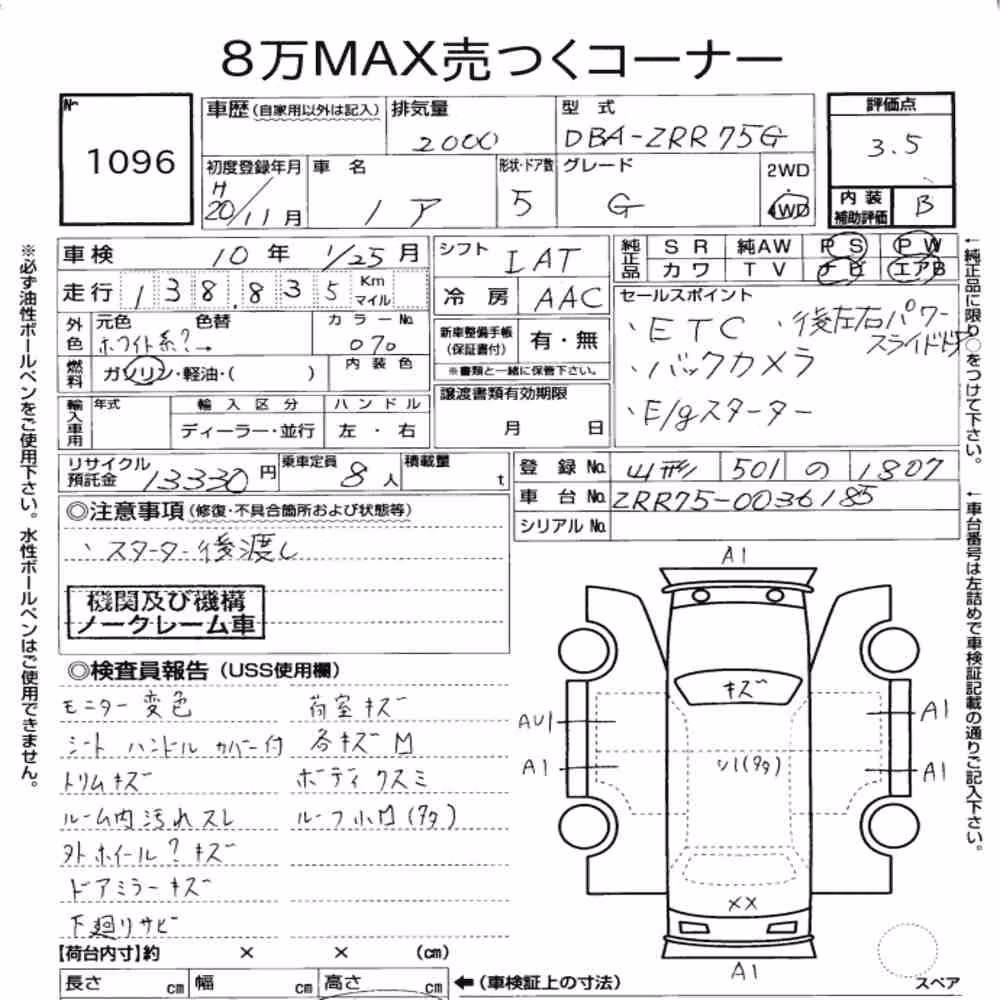 8万MAX売つくコーナー
№ 1096
車歴(自家用以外は記入) 排気量 2000 型式 DBA-ZRR75G
評価点 3.5
初度登録年月 H20/11月 車名 ノア 形状・ドア数 5 グレード G 2WD 4WD
内装補助評価 B
車検 10年 1/25月
シフト IAT
純正品 SR 純AW PS PW
カワ TV ナビ エアB
走行 138,835 Km マイル
冷房 AAC
セールスポイント
、ETC 、後左右パワースライドドア
、バックカメラ
、E/gスターター
外色 元色 色替 カラー№
ホワイト系?→ 070
新車整備手帳(保証書付) 有・無
※書類と一緒に保管下さい。
燃料 ガソリン・軽油・( ) 内装色
譲渡書類有効期限
月 日
輸入車用 年式 輸入区分 ハンドル
ディーラー・並行 左・右
リサイクル預託金 13330円 乗車定員 8人 積載量 t
登録№ 山形 501 の 1807
車台№ ZRR75-0036185
シリアル№
◎注意事項(修復・不具合箇所および状態等)
、スターター後渡し
機関及び機構
ノークレーム車
◎検査員報告(USS使用欄)
モニター変色 荷室キズ
シート ハンドル カバー付 各キズ凹
トリムキズ ボディクスミ
ルーム内汚れスレ ルーフ小凹(タタ)
外ホイール?キズ
ドアミラーキズ
下廻りサビ
【荷台内寸】約 × × (cm)
長さ cm 幅 cm 高さ cm
←(車検証上の寸法)
A1
キズ
AU1
A1
A1
A1
ソ1(タタ)
XX
A1
スペア
※必ず油性ボールペンをご使用下さい。水性ボールペンはご使用できません。
←純正品に限り○をつけて下さい。
←車台番号は左詰めで車検証記載の通りご記入下さい。